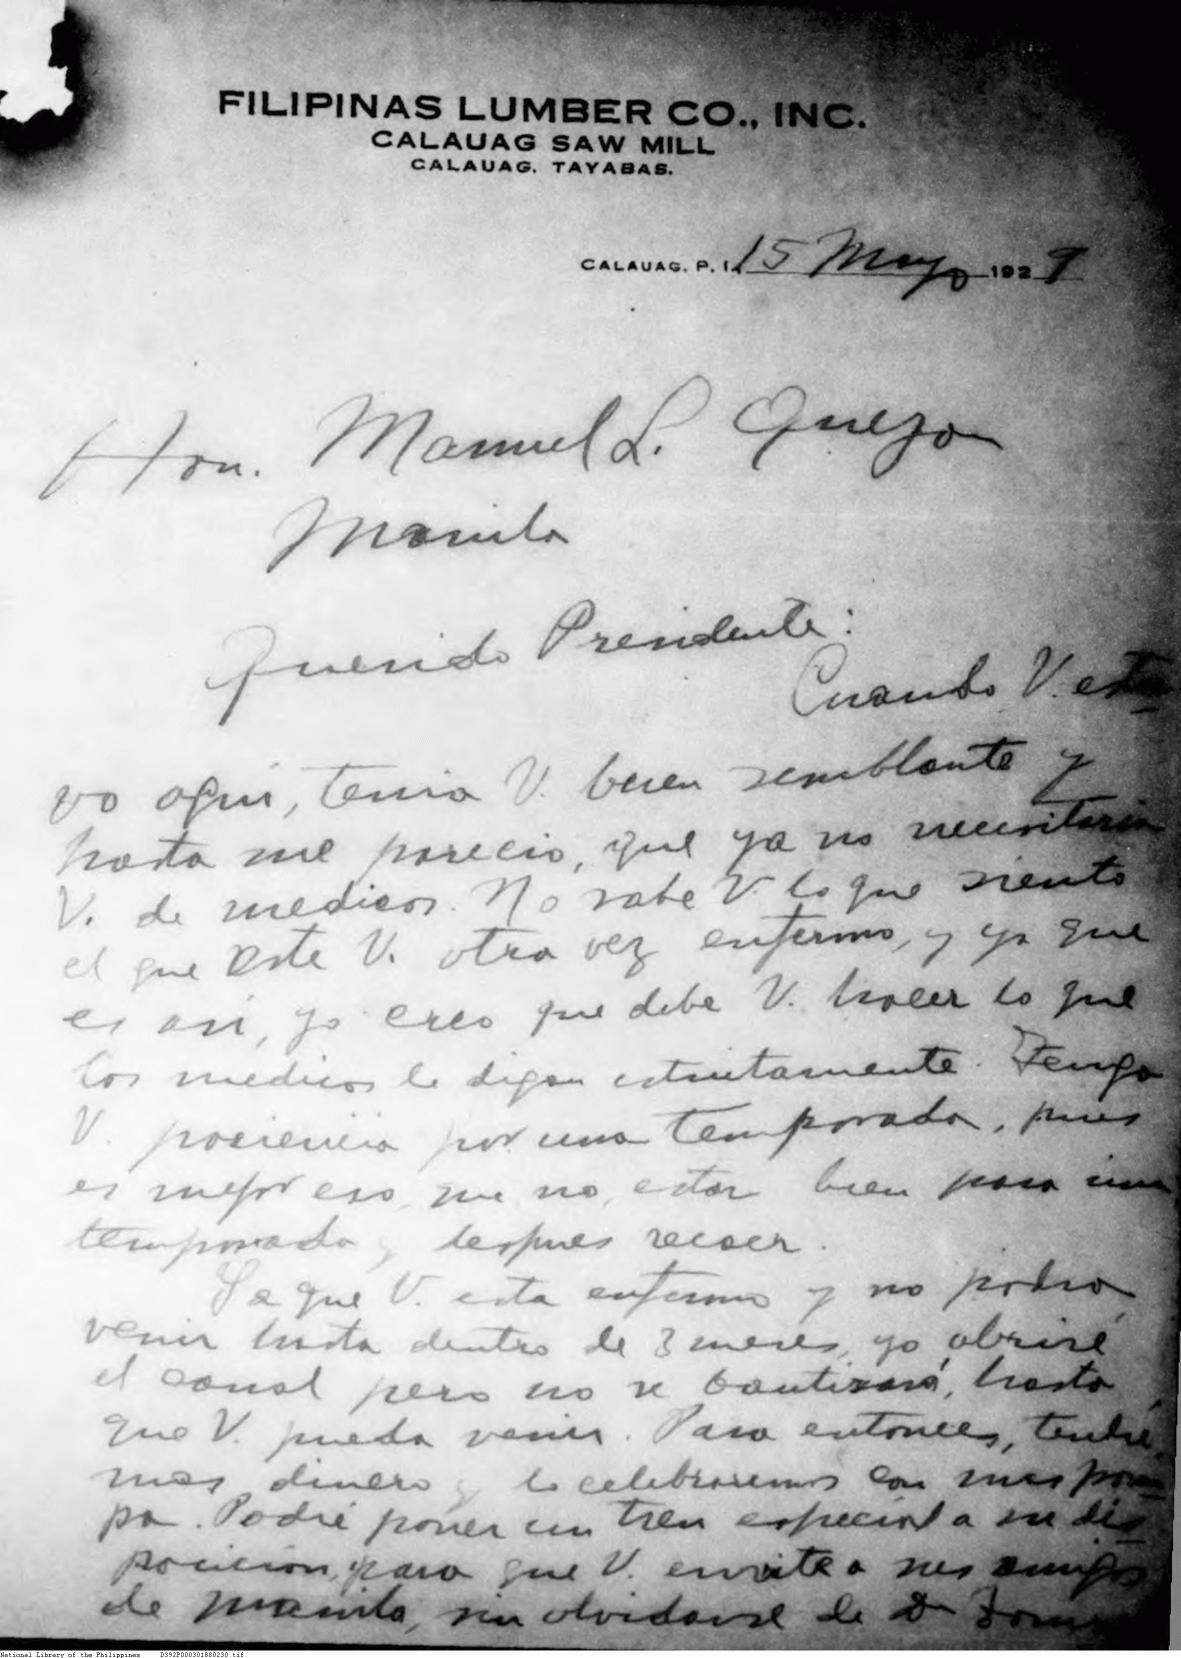 FILIPINAS LUMBER CO., INC.
CALAUAG SAW MILL
CALAUAG, TAYABAS.
CALAUAG, P. I. 15 Mayo 1929
Hon. Manuel L. Quezon
Manila
Querido Presidente:
Cuando V. estu-
vo aqui, tenia V. buen semblante y
hasta me parecio, que ya no necesitaria
V. de medicos. No sabe V. lo que siento
el que este V. otra vez enfermo, y ya que
es asi, yo creo que debe V. hacer lo que
los medicos le digan estrictamente. Tenga
V. paciencia por una temporada, pues
es mejor eso, que no, estar bien para una
temporada y despues recaer.
Ya que V. esta enfermo y no podra
venir hasta dentro de 3 meses, yo abriré
el canal pero no se bautizará, hasta
que V. pueda venir. Para entonces, tendré
mas dinero y lo celebraremos con mas pom-
pa. Podré poner un tren especial a su dis-
posicion, para que V. invite a sus amigos
de Manila, sin olvidarse de
National Library of the Philippines D392P000301880230.tif